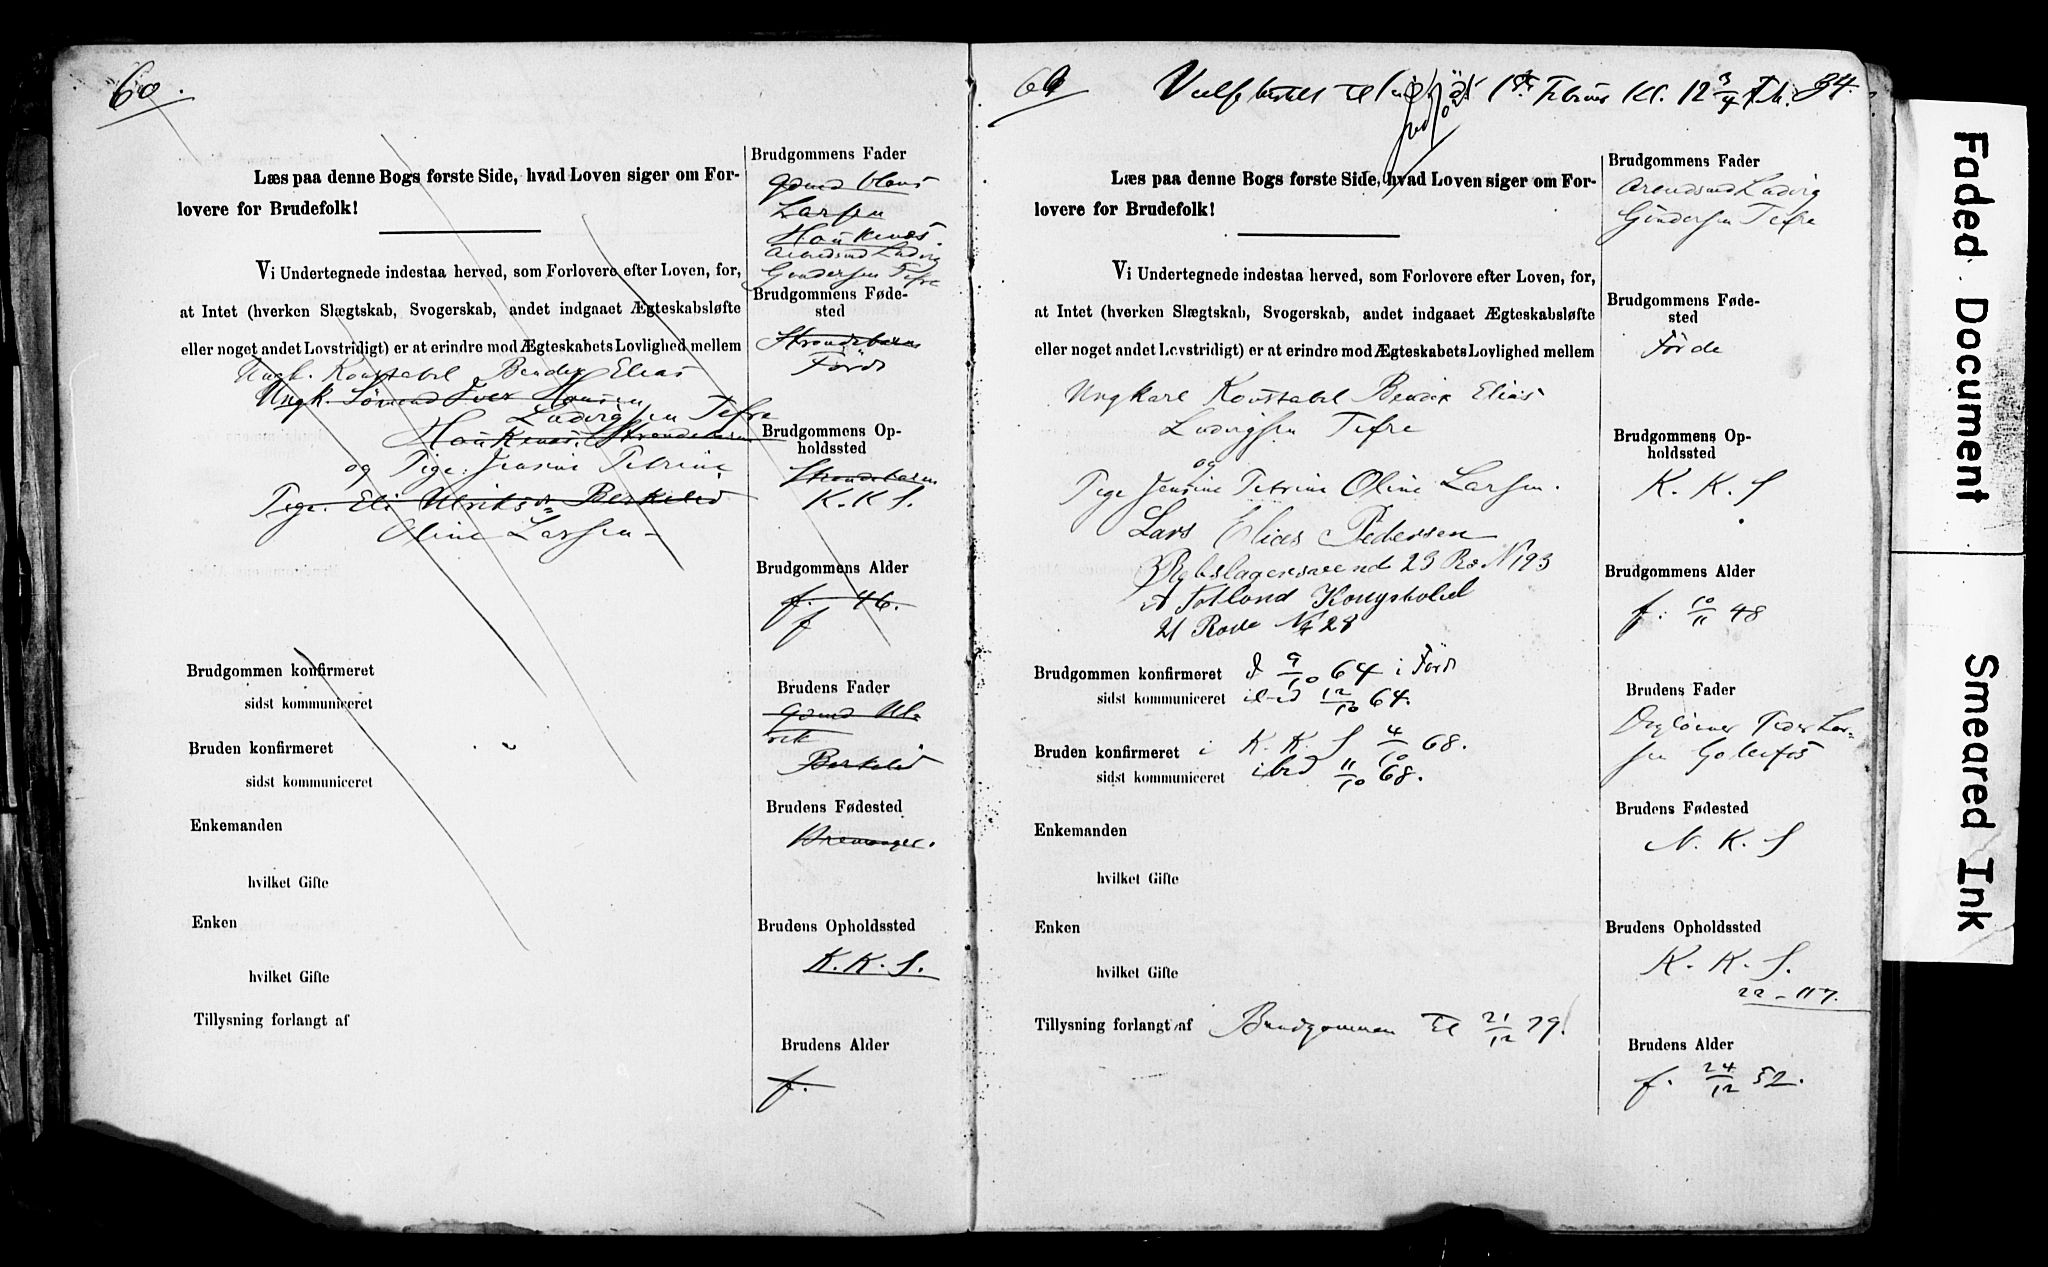 60.
Læs paa denne Bogs første Side, hvad Loven siger om For-
lovere for Brudefolk!
Vi Undertegnede indestaa herved, som Forlovere efter Loven, for,
at Intet (hverken Slægtskab, Svogerskab, andet indgaaet Ægteskabsløfte
eller noget andet Lovstridigt) er at erindre mod Ægteskabets Lovlighed mellem
Ungk. Konstabel Bendix Elias
Ungk. Sømand Iver Hansen
Ludvigsen Tefre
Haukenæs, Strandebarm
og Pige Jensine Petrine
Pige. Eli Ulriksd. Berkeled
Oline Larsen
Brudgommen konfirmeret
sidst kommuniceret
Bruden konfirmeret
sidst kommuniceret
Enkemanden
hvilket Gifte
Enken
hvilket Gifte
Tillysning forlangt af
Brudgommens Fader
Gaard Hans
Larsen
Haukenæs.
Arendsund Ludvig
Gundersen Tefre
Brudgommens Føde-
sted
Strandebarm
Förde
Brudgommens Op-
holdssted
Strandebarm
K. K. S.
Brudgommens Alder
f. 46.
f
Brudens Fader
Gaard Ul-
rik
Berkeled
Brudens Fødested
Bremanger.
Brudens Opholdssted
K. K. S.
Brudens Alder
f.
60 til 1ste Februar Kl. 12 3/4 84.
Læs paa denne Bogs første Side, hvad Loven siger om For-
lovere for Brudefolk!
Vi Undertegnede indestaa herved, som Forlovere efter Loven, for,
at Intet (hverken Slægtskab, Svogerskab, andet indgaaet Ægteskabsløfte
eller noget andet Lovstridigt) er at erindre mod Ægteskabets Lovlighed mellem
Ungkarl Konstabel Bendix Elias
Ludvigsen Tefre
og
Pige Jensine Petrine Oline Larsen.
Lars Elias Pedersen
Rebslagersvend 23 Ro N 193
A Totland Kongsholel
21 Rode N 28
Brudgommen konfirmeret d 9/10 64 i Förde
sidst kommuniceret ibid 12/10 64.
Bruden konfirmeret i K. K. S 4/10 68.
sidst kommuniceret ibid 11/10 68.
Enkemanden
hvilket Gifte
Enken
hvilket Gifte
Tillysning forlangt af Brudgommen til 21/12 79.
Brudgommens Fader
Arendsund Ludvig
Gundersen Tefre
Brudgommens Føde-
sted
Förde
Brudgommens Op-
holdssted
K. K. S
Brudgommens Alder
f. 10/11 48
Brudens Fader
Peder Lar-
sen
Brudens Fødested
N. K. S
Brudens Opholdssted
K. K. S.
22 - 117.
Brudens Alder
f. 24/12 52.
Faded Document
Smeared Ink